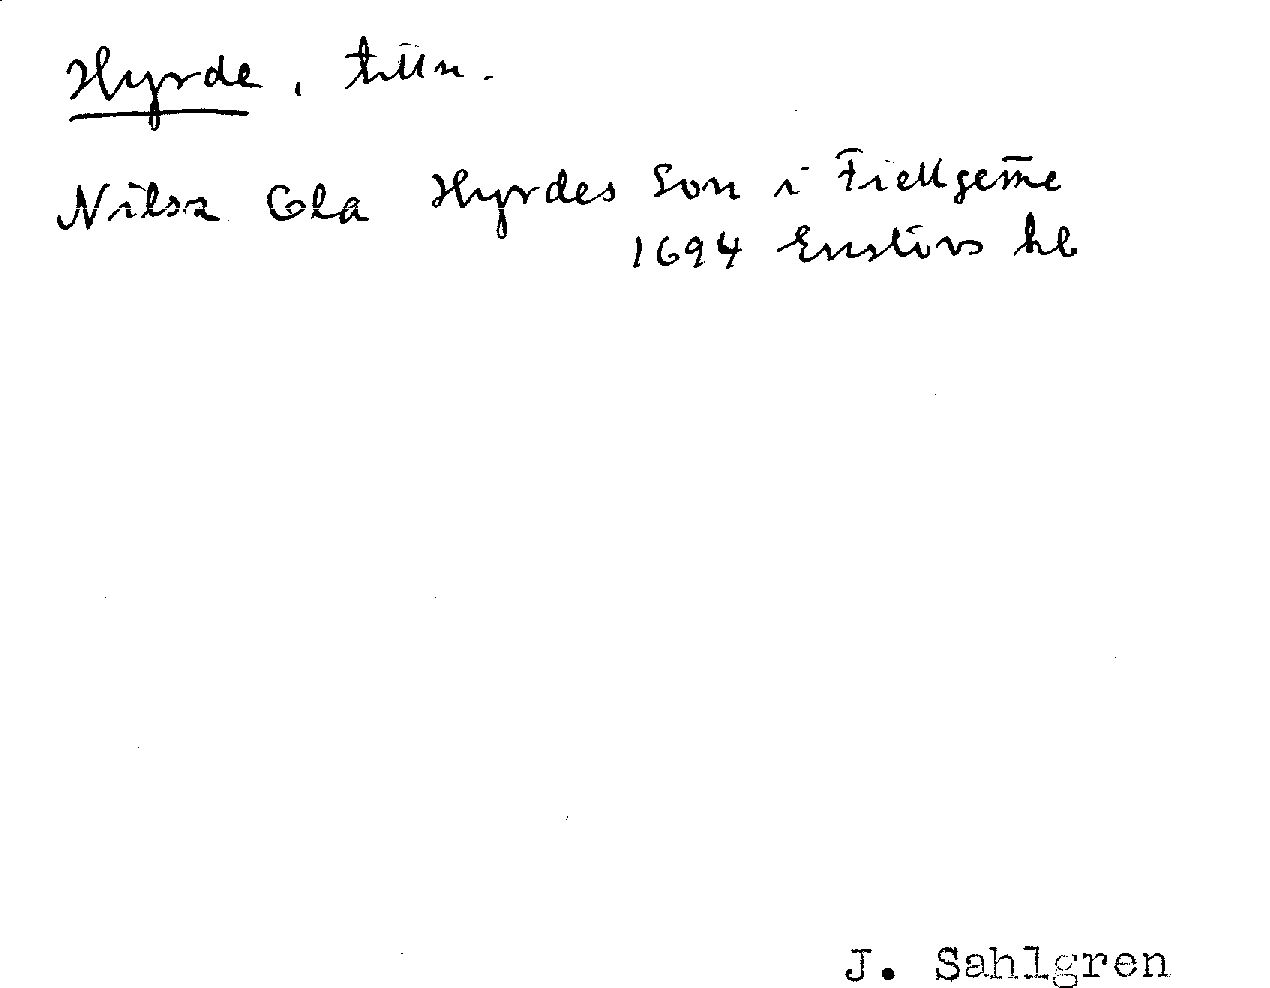 Hyrde, tilln.
Nilsz Ola Hyrdes Son i Fiellgem̄e
1694 Enslövs kb
J. Sahlgren